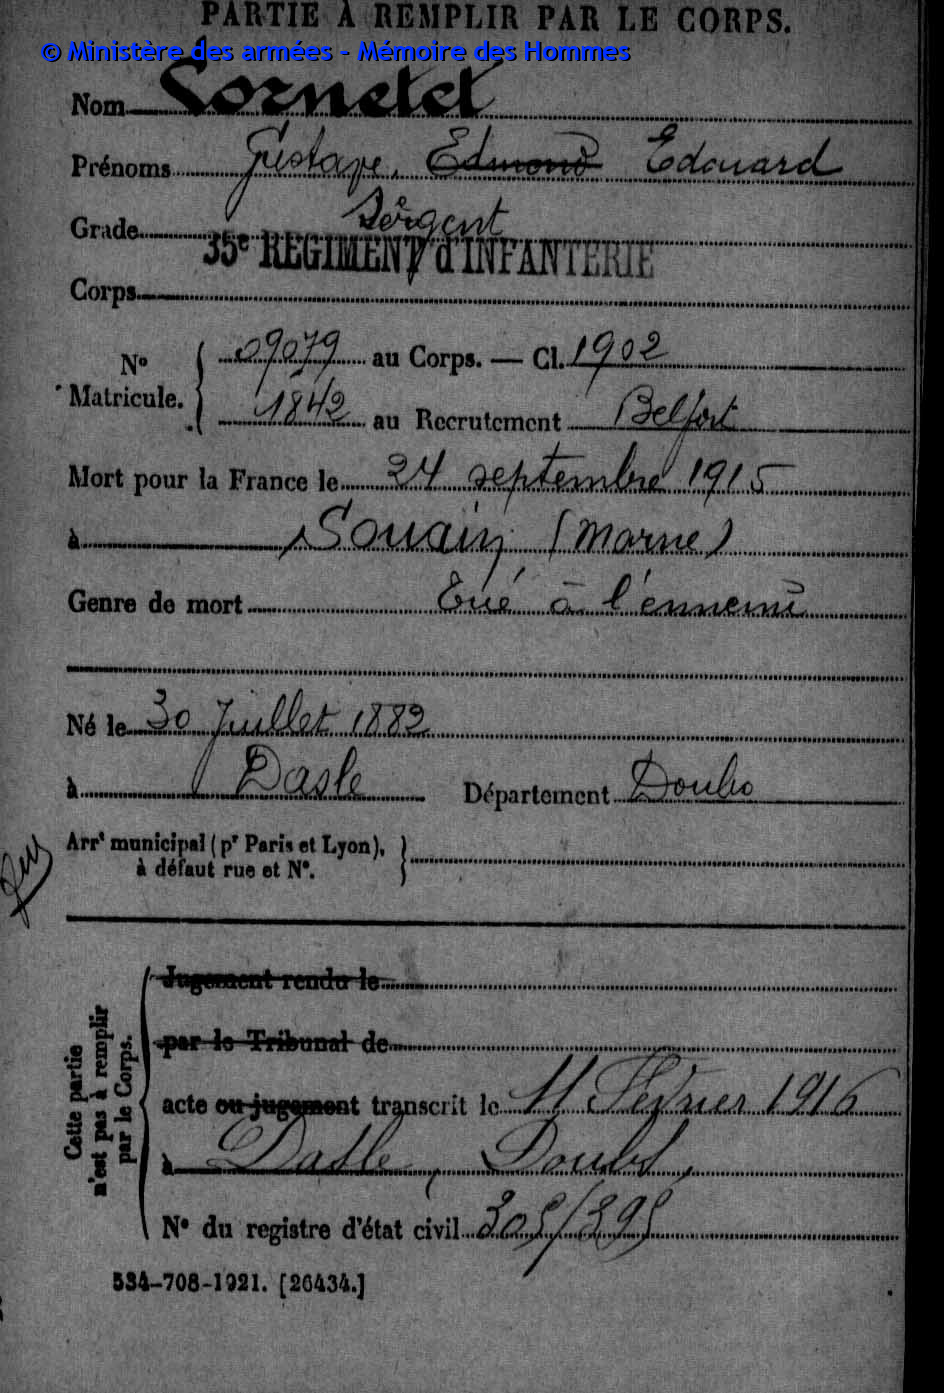 PARTIE À REMPLIR PAR LE CORPS.
© Ministère des armées - Mémoire des Hommes
Nom Cornetet
Prénoms Gustave, Edmond Edouard
Grade Sergent
35e REGIMENT d'INFANTERIE
Corps
No Matricule. { 09079 au Corps. — Cl. 1902
1842 au Recrutement Belfort
Mort pour la France le 24 septembre 1915
à Souain (Marne)
Genre de mort Tué à l'ennemi
Né le 30 Juillet 1882
à Dasle Département Doubs
Arrt municipal (pr Paris et Lyon),
à défaut rue et No.
Cette partie n'est pas à remplir par le Corps.
Jugement rendu le
par le Tribunal de
acte ou jugement transcrit le 11 Février 1916
à Dasle, Doubs,
No du registre d'état civil 305/395
534-708-1921. [26434.]